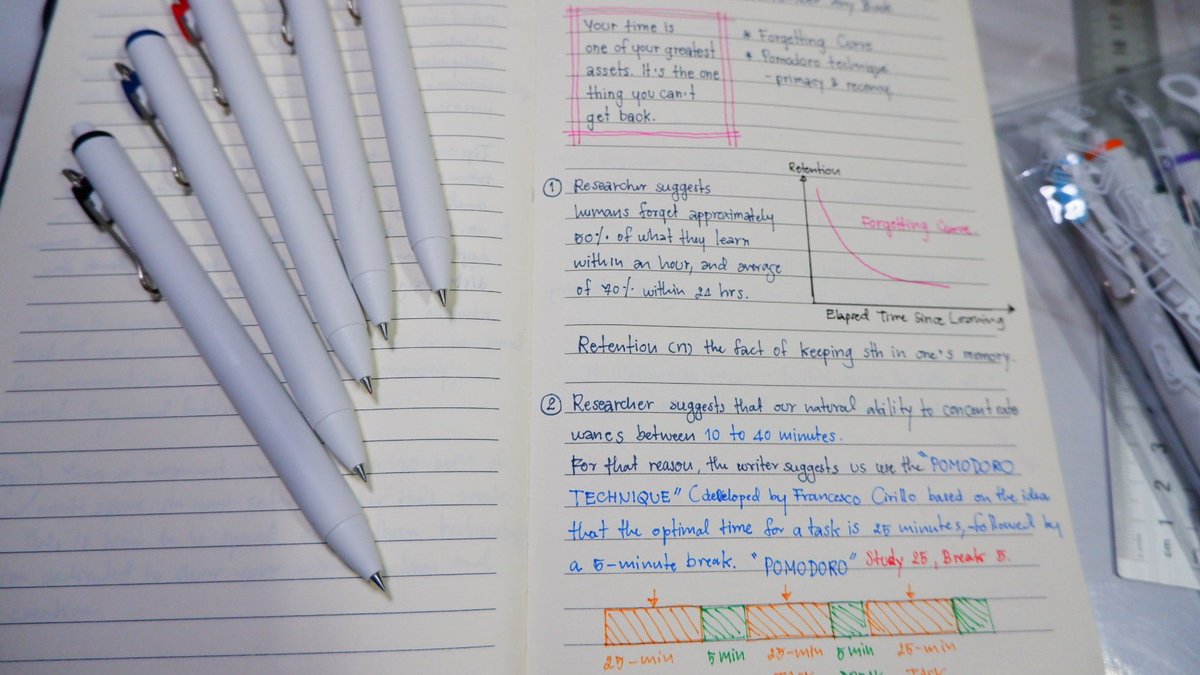 Any Book
Your time is
one of your greatest
assets. It's the one
thing you can't
get back.
* Forgetting Curve
* Pomodoro technique
- primacy & recency
Retention
Forgetting Curve
Elapsed Time Since Learning
① Researcher suggests
humans forget approximately
50% of what they learn
within an hour, and average
of 70% within 24 hrs.
Retention (n) the fact of keeping sth in one's memory.
② Researcher suggests that our natural ability to concentrate
wanes between 10 to 40 minutes.
For that reason, the writer suggests us use the "POMODORO
TECHNIQUE" (developed by Francesco Cirillo based on the idea
that the optimal time for a task is 25 minutes, followed by
a 5-minute break. "POMODORO" Study 25, Break 5.
25-min 5 min 25-min 5 min 25-min